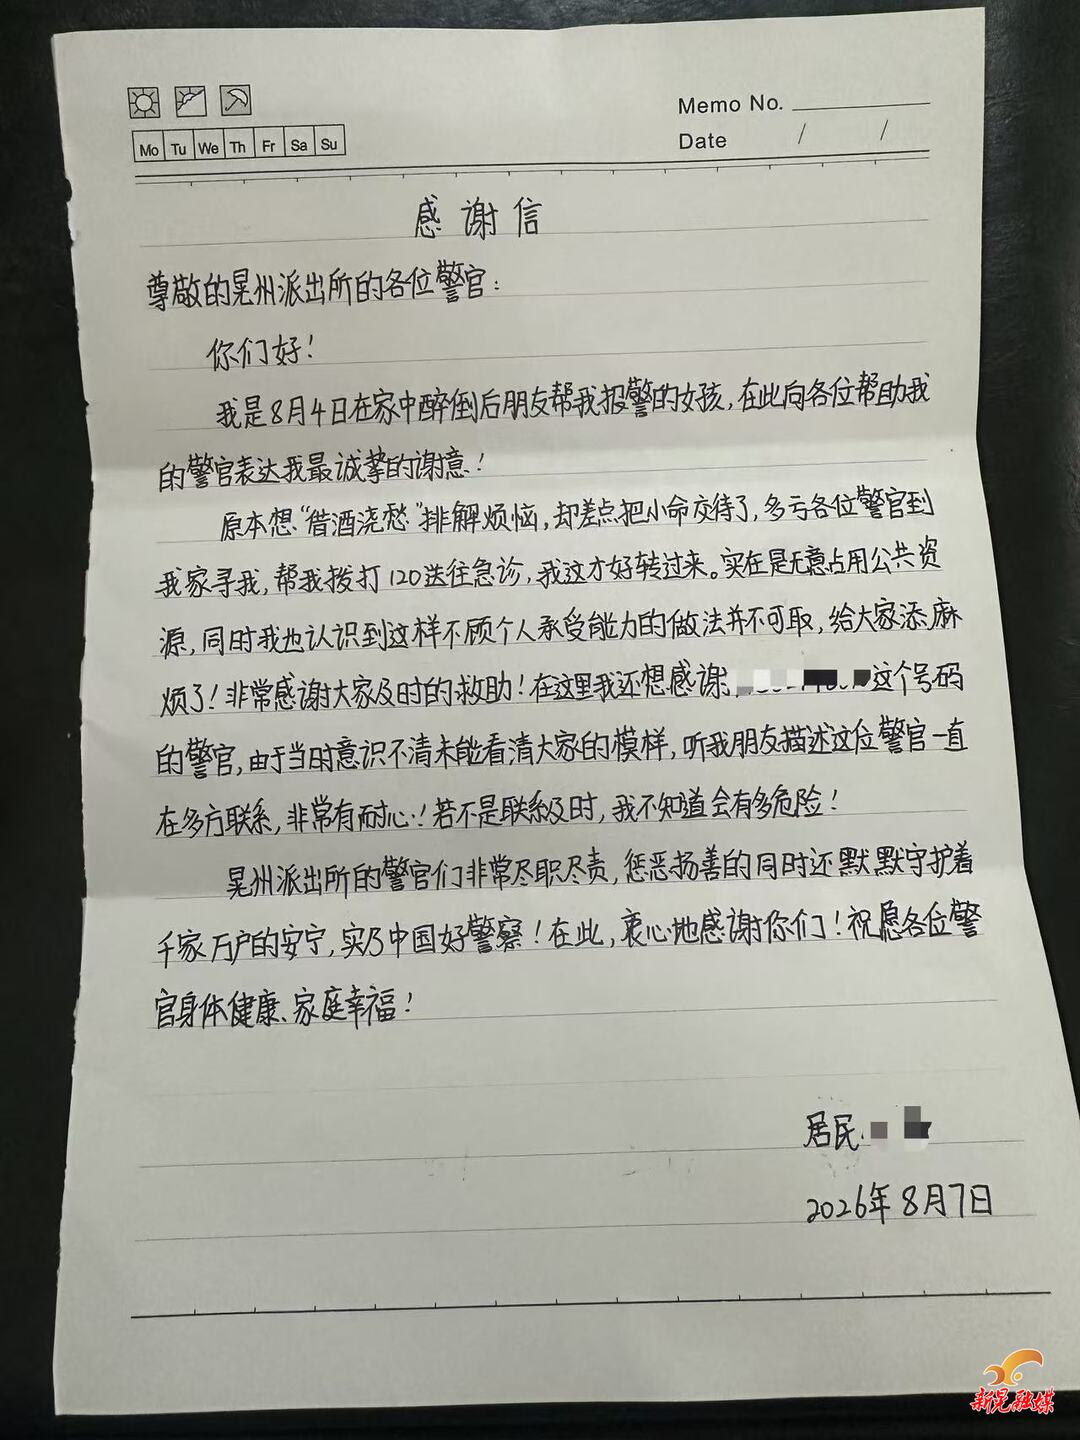 Memo No.
Mo Tu We Th Fr Sa Su
Date / /
感谢信
尊敬的晃州派出所的各位警官：
你们好！
我是8月4日在家中醉倒后朋友帮我报警的女孩，在此向各位帮助我
的警官表达我最诚挚的谢意！
原本想“借酒浇愁”排解烦恼，却差点把小命交待了，多亏各位警官到
我家寻我，帮我拨打120送往急诊，我这才好转过来。实在是无意占用公共资
源，同时我也认识到这样不顾个人承受能力的做法并不可取，给大家添麻
烦了！非常感谢大家及时的救助！在这里我还想感谢这个号码
的警官，由于当时意识不清未能看清大家的模样，听我朋友描述这位警官一直
在多方联系，非常有耐心！若不是联系及时，我不知道会有多危险！
晃州派出所的警官们非常尽职尽责，惩恶扬善的同时还默默守护着
千家万户的安宁，实乃中国好警察！在此，衷心地感谢你们！祝愿各位警
官身体健康、家庭幸福！
居民
2026年8月7日
新晃融媒